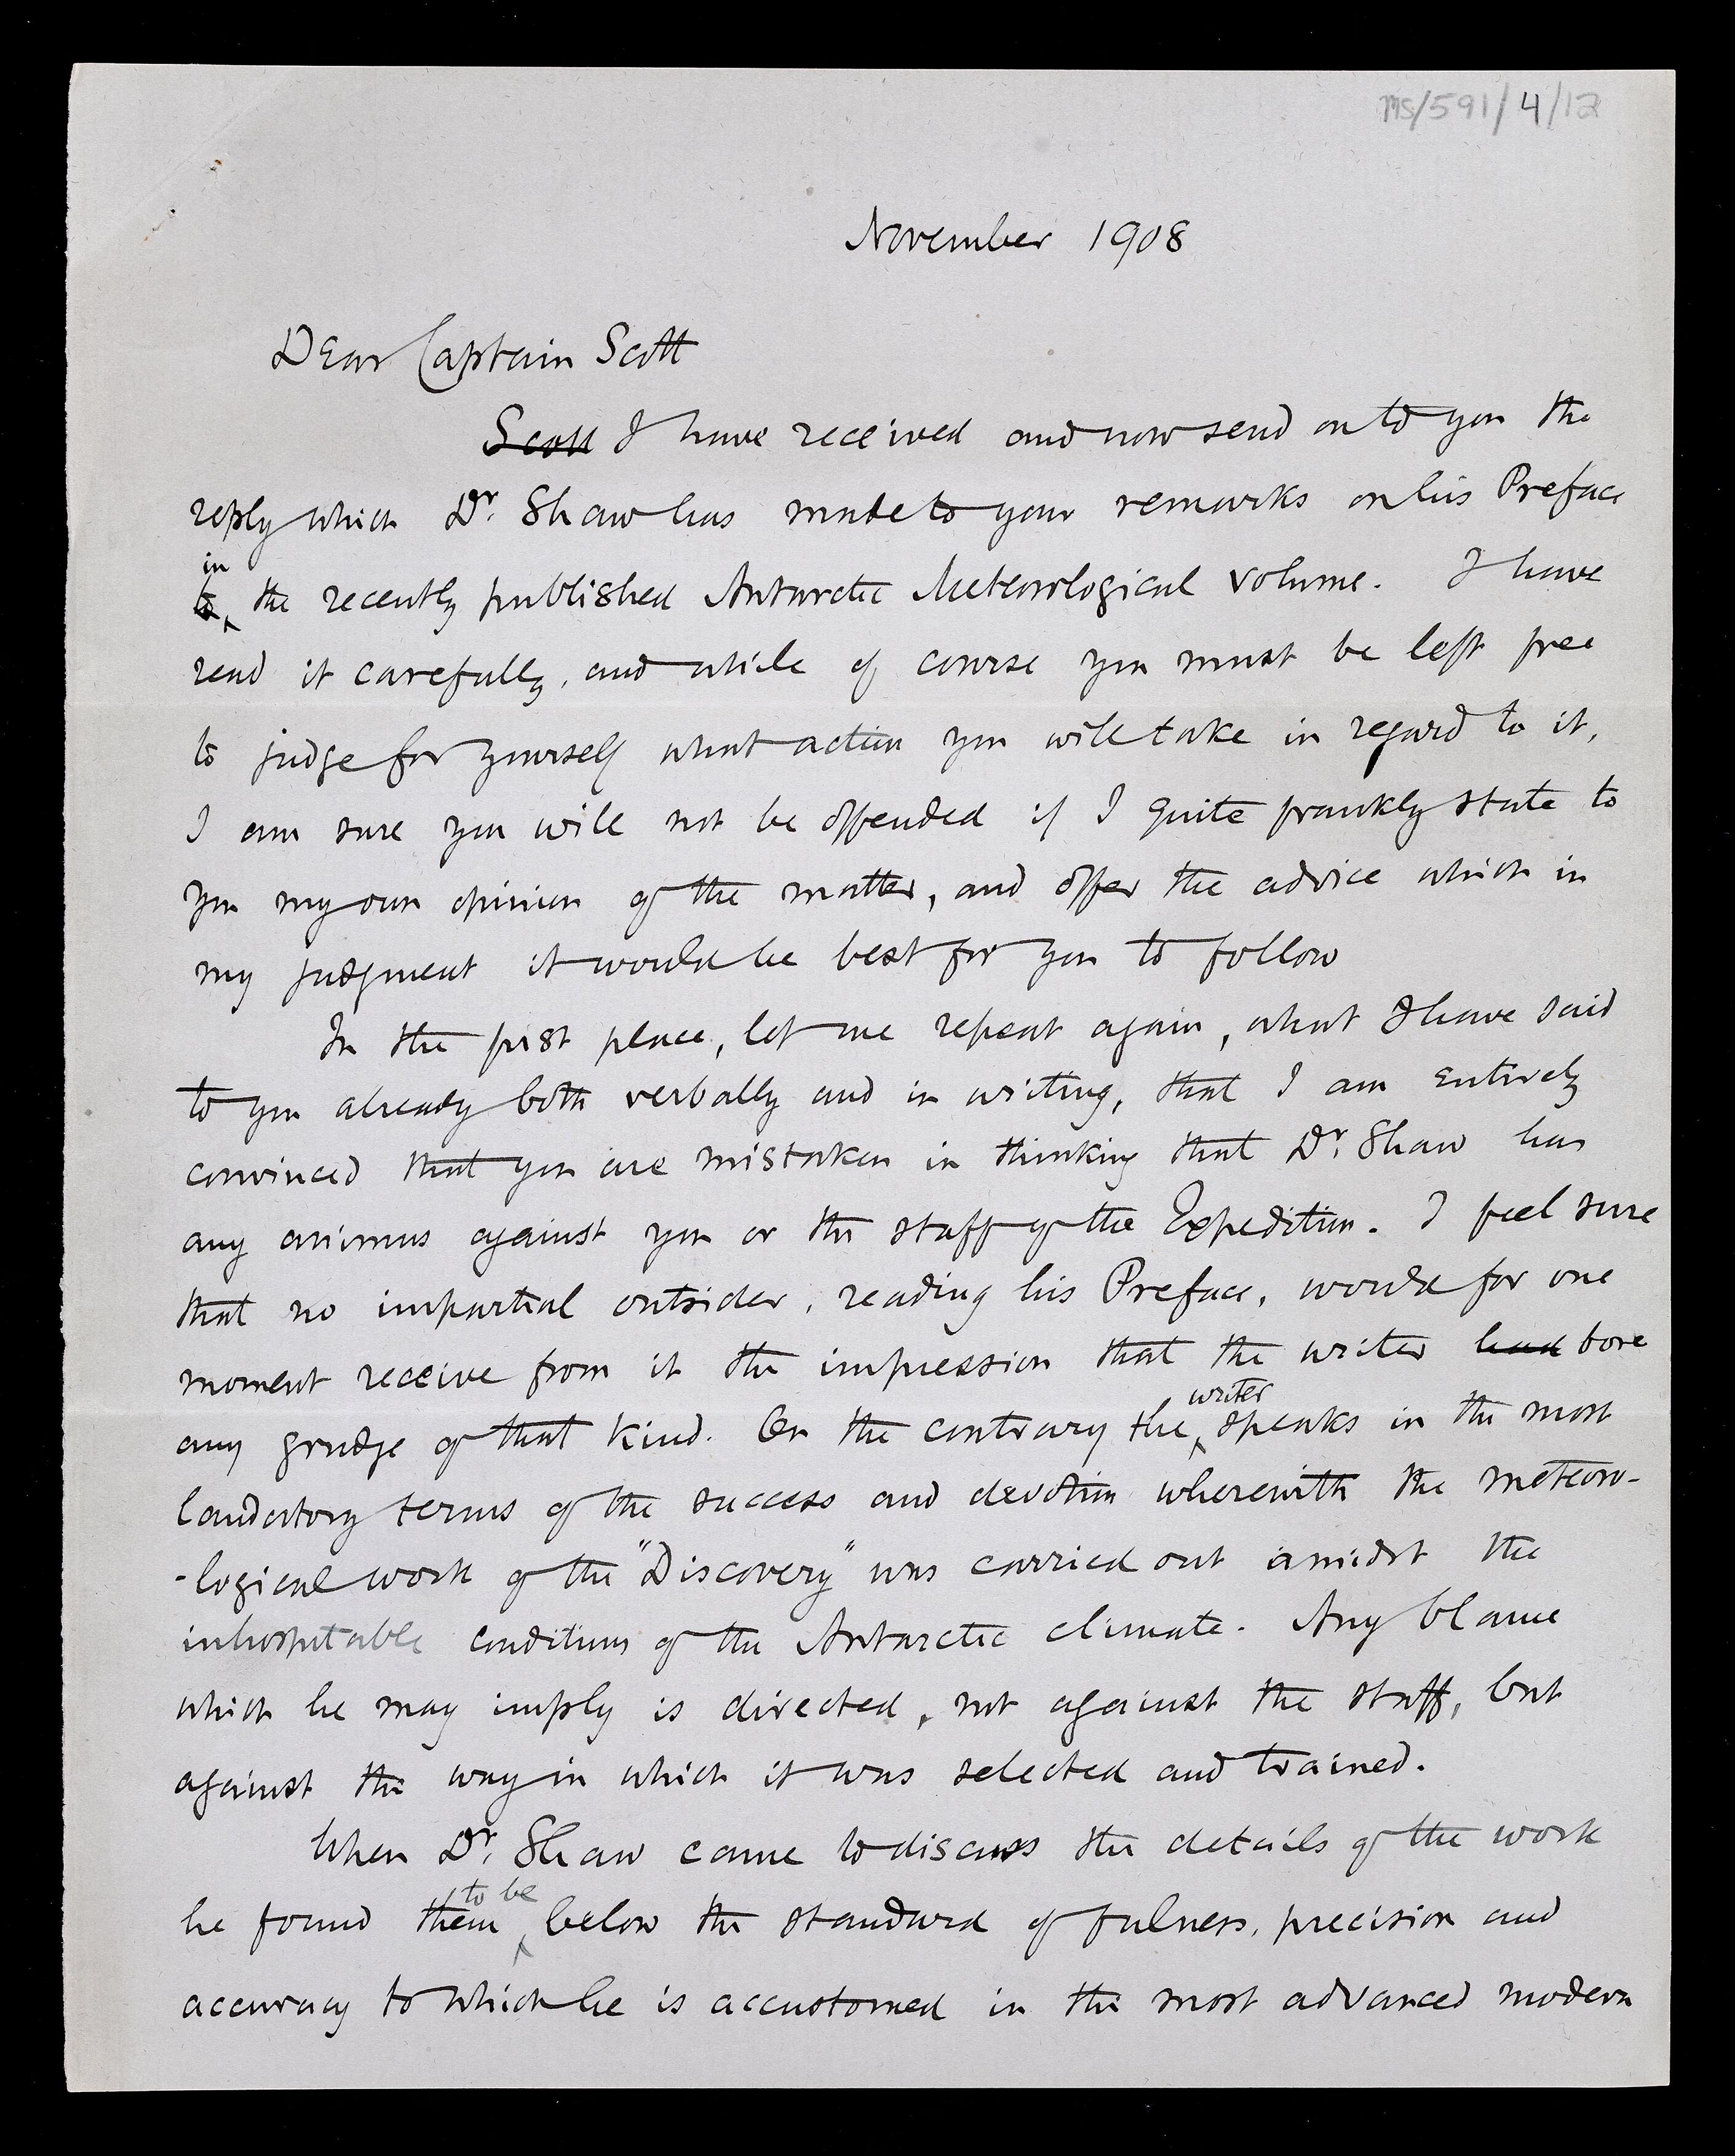 MS/591/4/12
November 1908
Dear Captain Scott
Scott I have received and now send on to you the
reply which Dr. Shaw has made to your remarks on his Preface
in
to the recently published Antarctic Meteorological volume. I have
read it carefully, and while of course you must be left free
to judge for yourself what action you will take in regard to it,
I am sure you will not be offended if I quite frankly state to
you my own opinion of the matter, and offer the advice which in
my judgment it would be best for you to follow
In the first place, let me repeat again, what I have said
to you already both verbally and in writing, that I am entirely
convinced that you are mistaken in thinking that Dr. Shaw has
any animus against you or the staff of the Expedition. I feel sure
that no impartial outsider, reading his Preface, would for one
moment receive from it the impression that the writer had bore
writer
any grudge of that kind. On the contrary the speaks in the most
laudatory terms of the success and devotion wherewith the meteoro-
-logical work of the "Discovery" was carried out amidst the
inhospitable conditions of the Antarctic climate. Any blame
which he may imply is directed, not against the staff, but
against the way in which it was selected and trained.
When Dr. Shaw came to discuss the details of the work
to be
he found them below the standard of fulness, precision and
accuracy to which he is accustomed in the most advanced modern